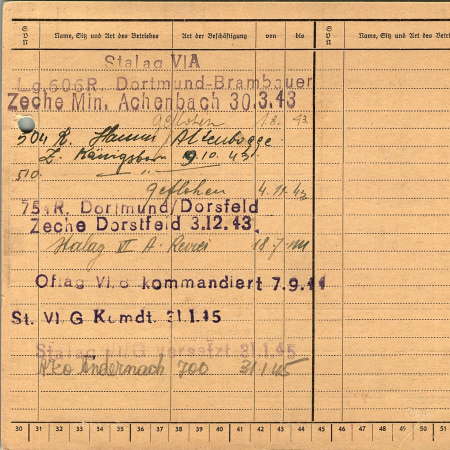 Von Name, Sitz und Art des Betriebes Art der Beschäftigung von bis Von Name, Sitz und Art des Betri
Stalag VI A
Lg.606R. Dortmund-Brambauer
Zeche Min. Achenbach 30.3.43
geflohen 1.8. 43
504 R. Hamm/Altenbögge
Z. Königsborn 9.10.43
510. "
geflohen 4.11.43
754R. Dortmund/Dorsfeld
Zeche Dorstfeld 3.12.43
Stalag VI A. Revier 18.7.44
Oflag VI kommandiert 7.9.44
St. VI G Komdt. 31.1.45
Stalag VI G versetzt 31.1.45
Ako Andernach 700 31/1/45
30 31 32 33 34 35 36 37 38 39 40 41 42 43 44 45 46 47 48 49 50 51